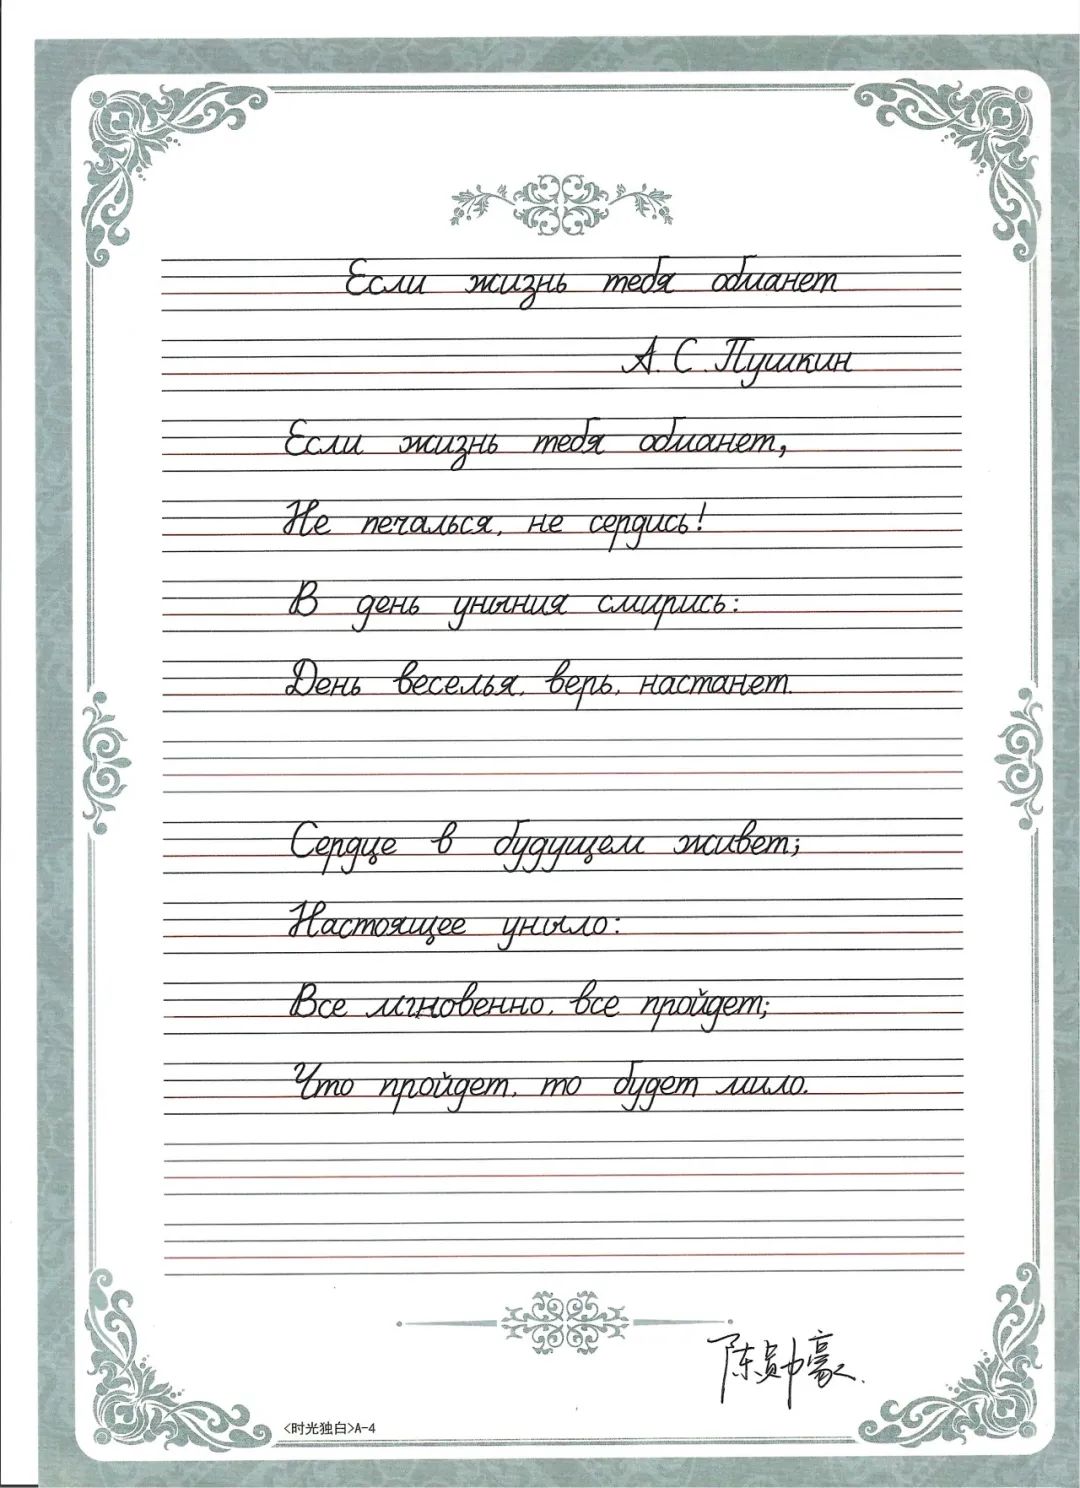 Если жизнь тебя обманет
А. С. Пушкин
Если жизнь тебя обманет,
Не печалься, не сердись!
В день уныния смирись:
День веселья, верь, настанет.
Сердце в будущем живет;
Настоящее уныло:
Все мгновенно, все пройдет;
Что пройдет, то будет мило.
<时光独白>A-4